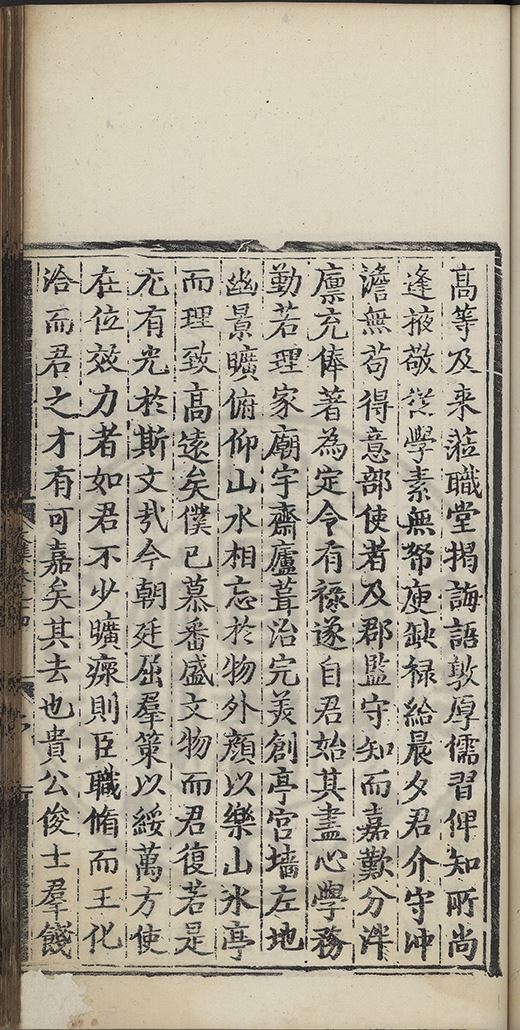 高等及來涖職堂揭誨語敦厚儒習俾知所尚
逢掖敬從學素無帑庾缺祿給晨夕君介守冲
澹無苟得意部使者及郡監守知而嘉歎分泮
廪充俸著為定令有祿遂自君始其盡心學務
勤若理家廟宇齋廬葺治完美創亭宮墻左地
幽景曠俯仰山水相忘於物外顔以樂山水亭
而理致高遠矣僕已慕番盛文物而君復若是
尤有光於斯文㢤今朝廷屈羣策以綏萬方使
在位效力者如君不少曠瘝則臣職脩而王化
洽而君之才有可嘉矣其去也貴公俊士羣餞